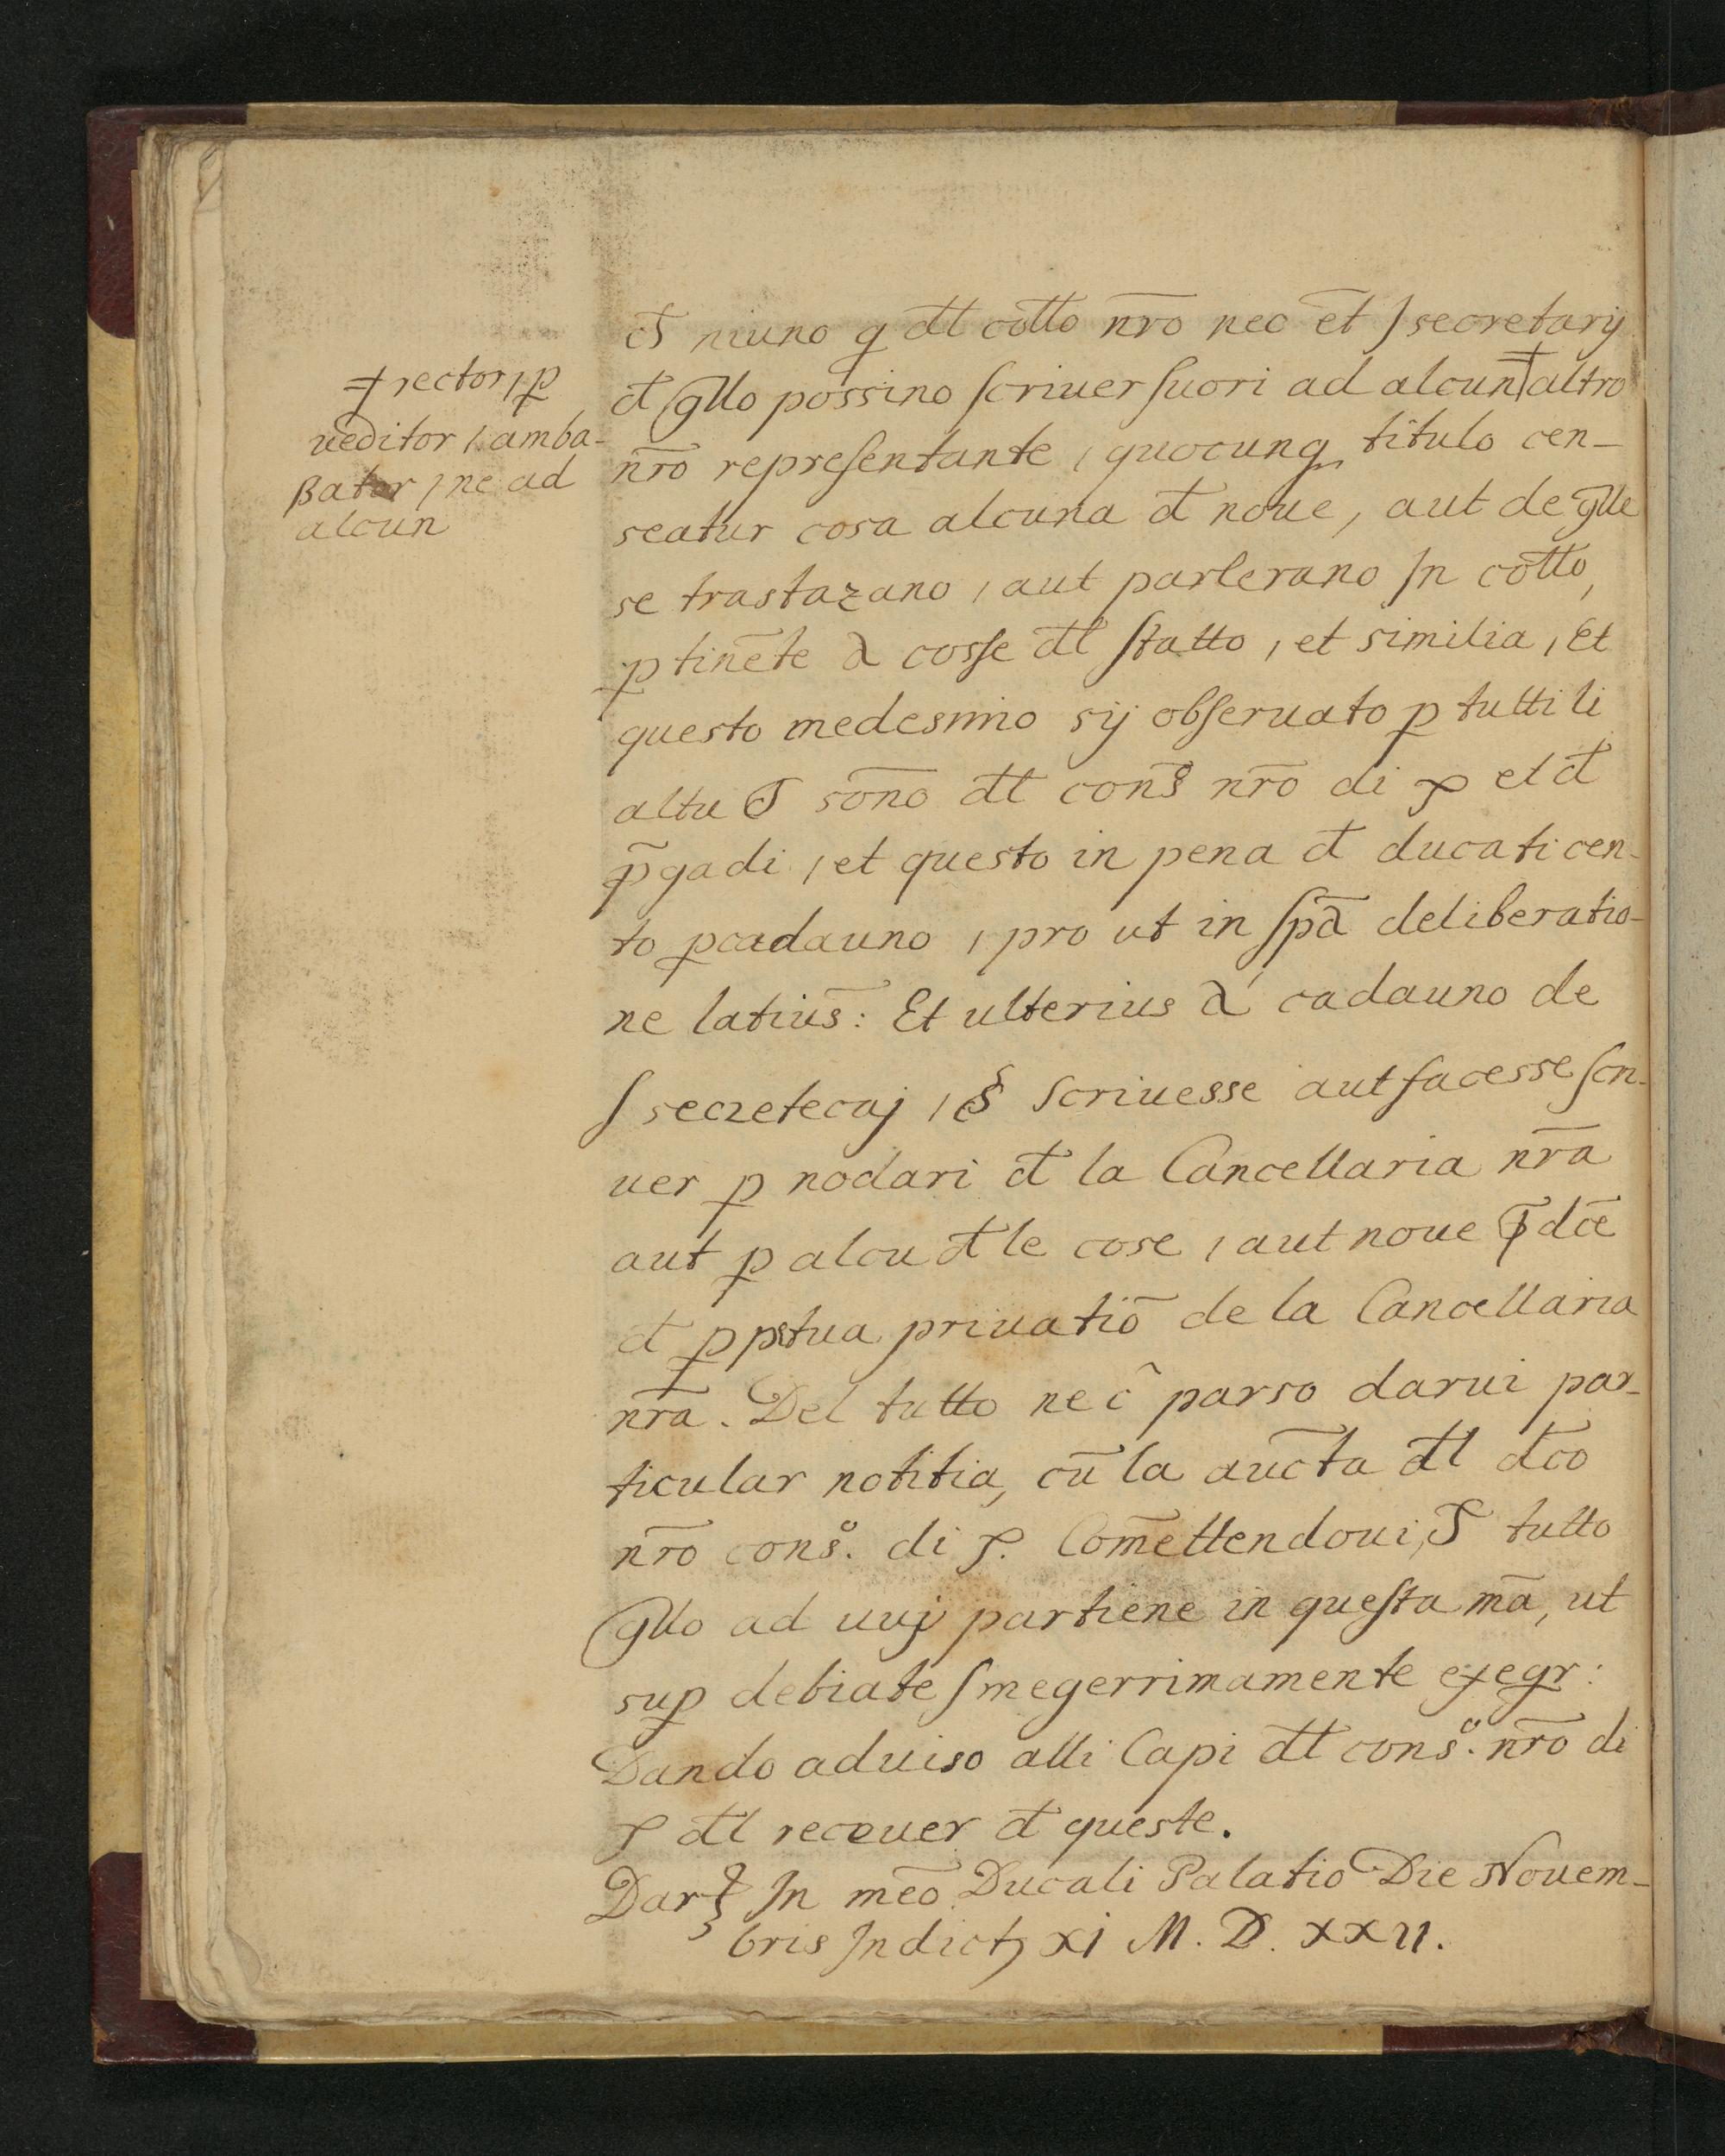 niuno q dl̄ cottō nr̄o nec et̄ secretarij
d̄ qllo possino scriuer fuori ad alcun ǂ altro
ǂ rector, p
ueditor, amba-
ßator, ne ad
alcun
nr̄o representante, quocunq titulo cen-
seatur cosa alcuna d̄ noue, aut de qlle
se trastazano, aut parlerano In cottō,
ptinēte à cosse dl̄ statto, et similia, Et
questo medesimo sij obseruato p tutti li
sōno dl̄ cons̊ nr̄o di et d̄
p̄gadi, et questo in pena d̄ ducati cen-
to pcadauno, pro ut in sp̄a deliberatio-
ne latius̄: Et ulterius à cadauno de
scriuesse aut facesse scri-
uer p nodari d̄ la Cancellaria nr̄a
aut p alcu d̄ le cose, aut noue p̄dcē
d̄ ppetua priuatiō de la Cancellaria
nr̄a. Del tutto ne è parso darui par-
ticular notitia, cū la auct̄a dl̄ dc̄o
nr̄o cons̊. di X. Com̄ettendoui, tutto
qllo ad uuj partiene in questa mā, ut
sup debiate exeqr:
Dando aduiso alli Capi dl̄ cons̊. nr̄o di
X dl̄ receuer d̄ queste.
Dat In nr̄o Ducali Palatio Die Nouem-
bris Indict xi M. D. xxii.